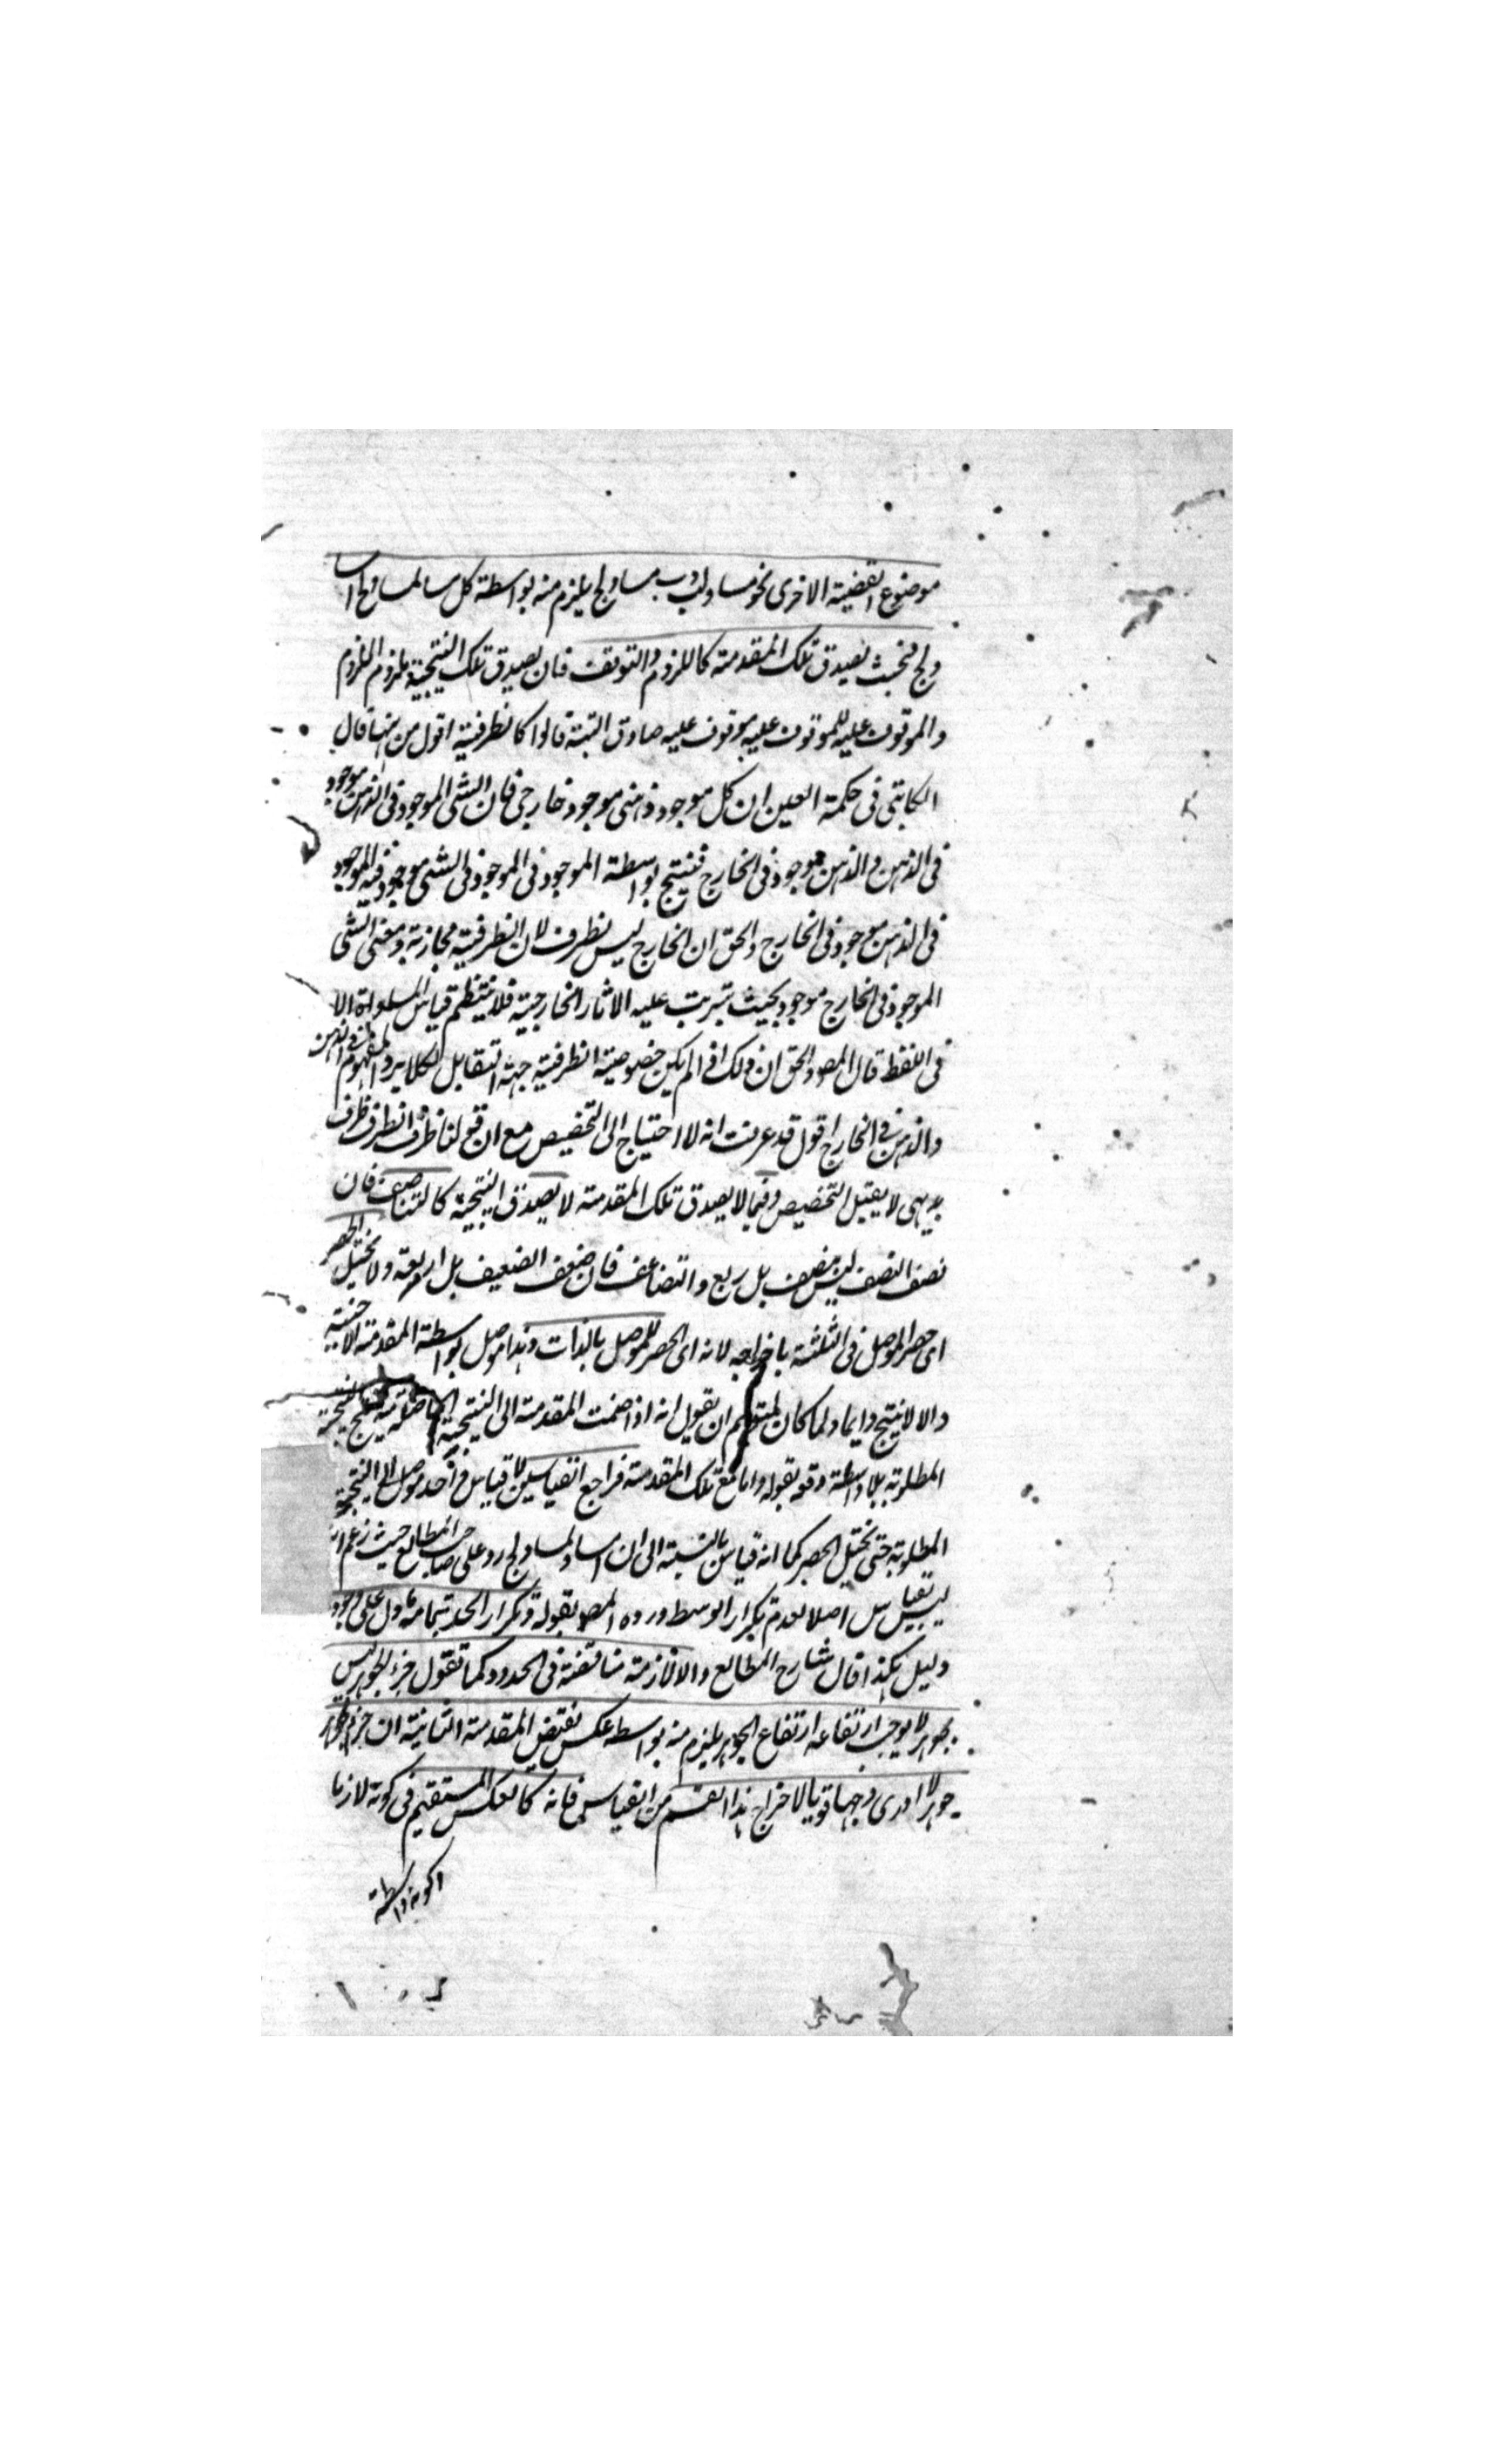 موضوع القضية الاخرى نحو ا مساو لب و ب مساو لج يلزم منه بواسطة كل مساو لمساو لج ا مساو
لج فحيث تصدق تلك المقدمة كاللزوم والتوقف فان تصدق تلك النتيجة ملزوم الملزوم
والموقوف عليه للموقوف عليه موقوف عليه صادق البتة قالوا كالظرفية اقول من ههنا قال
الكاتبى فى حكمة العين ان كل موجود ذهنى موجود خارجى فان الشى الموجود فى الذهن موجود
فى الذهن والذهن موجود فى الخارج فينتج بواسطة الموجود فى الموجود فى الشى موجود فيه الموجود
فى الذهن موجود فى الخارج والحق ان الخارج ليس بظرف لان الظرفية مجازية ومعنى الشى
الموجود فى الخارج موجود بحيث تترتب عليه الاثار الخارجية فلا ينتظم قياس المساواة الا
فى اللفظ قال المصـ والحق ان ذلك اذا لم يكن خصوصية الظرفية جهة التقابل لئلا يرد المفهوم فى الذهن
والذهن فى الخارج اقول قد عرفت انه لا احتياج الى التخصيص مع ان قولنا ظرف الظرف ظرف
بديهى لا يقبل التخصيص وفيما لا يصدق تلك المقدمة لا يصدق النتيجة كالتناصف فان
نصف النصف ليس بنصف بل ربع والتضاعف فان ضعف الضعيف بل اربعة ولا يختل الحصر
اى حصر الموصل فى الثلثة باخراجه لانه اى الحصر للموصل بالذات وهذا موصل بواسطة المقدمة الاجنبية
والا لا ينتج دايما ولما كان لمتوهم ان يقول انه اذا ضمت المقدمة الى النتيجة الحاصلة منه ينتج النتيجة
المطلوبة بلا واسطة دفعه بقوله واما مع تلك المقدمة فراجع الى قياسين لا قياس واحد موصل الى النتيجة
المطلوبة حتى يختل الحصر كما انه قياس بالنسبة الى ان ا مساو لمساو لج رد على صاحب المطالع حيث زعم انه
ليس بقياس اصلا لعدم تكرار الوسط ورده المصـ بقوله وتكرار الحد بتمامه ما دل على وجوبه
دليل هكذا قال شارح المطالع والا لازمة مناقضة فى الحدود كما تقول جزء الجوهر ليس
بجوهر لا يوجب ارتفاعه ارتفاع الجوهر يلزم منه بواسطه عكس نقيض المقدمة الثانية ان جزء الجوهر
جوهر لا ادرى وجها قويا لاخراج هذا القسم من القياس فانه كالعكس المستقيم فى كونه لازما
اكونه واسطة